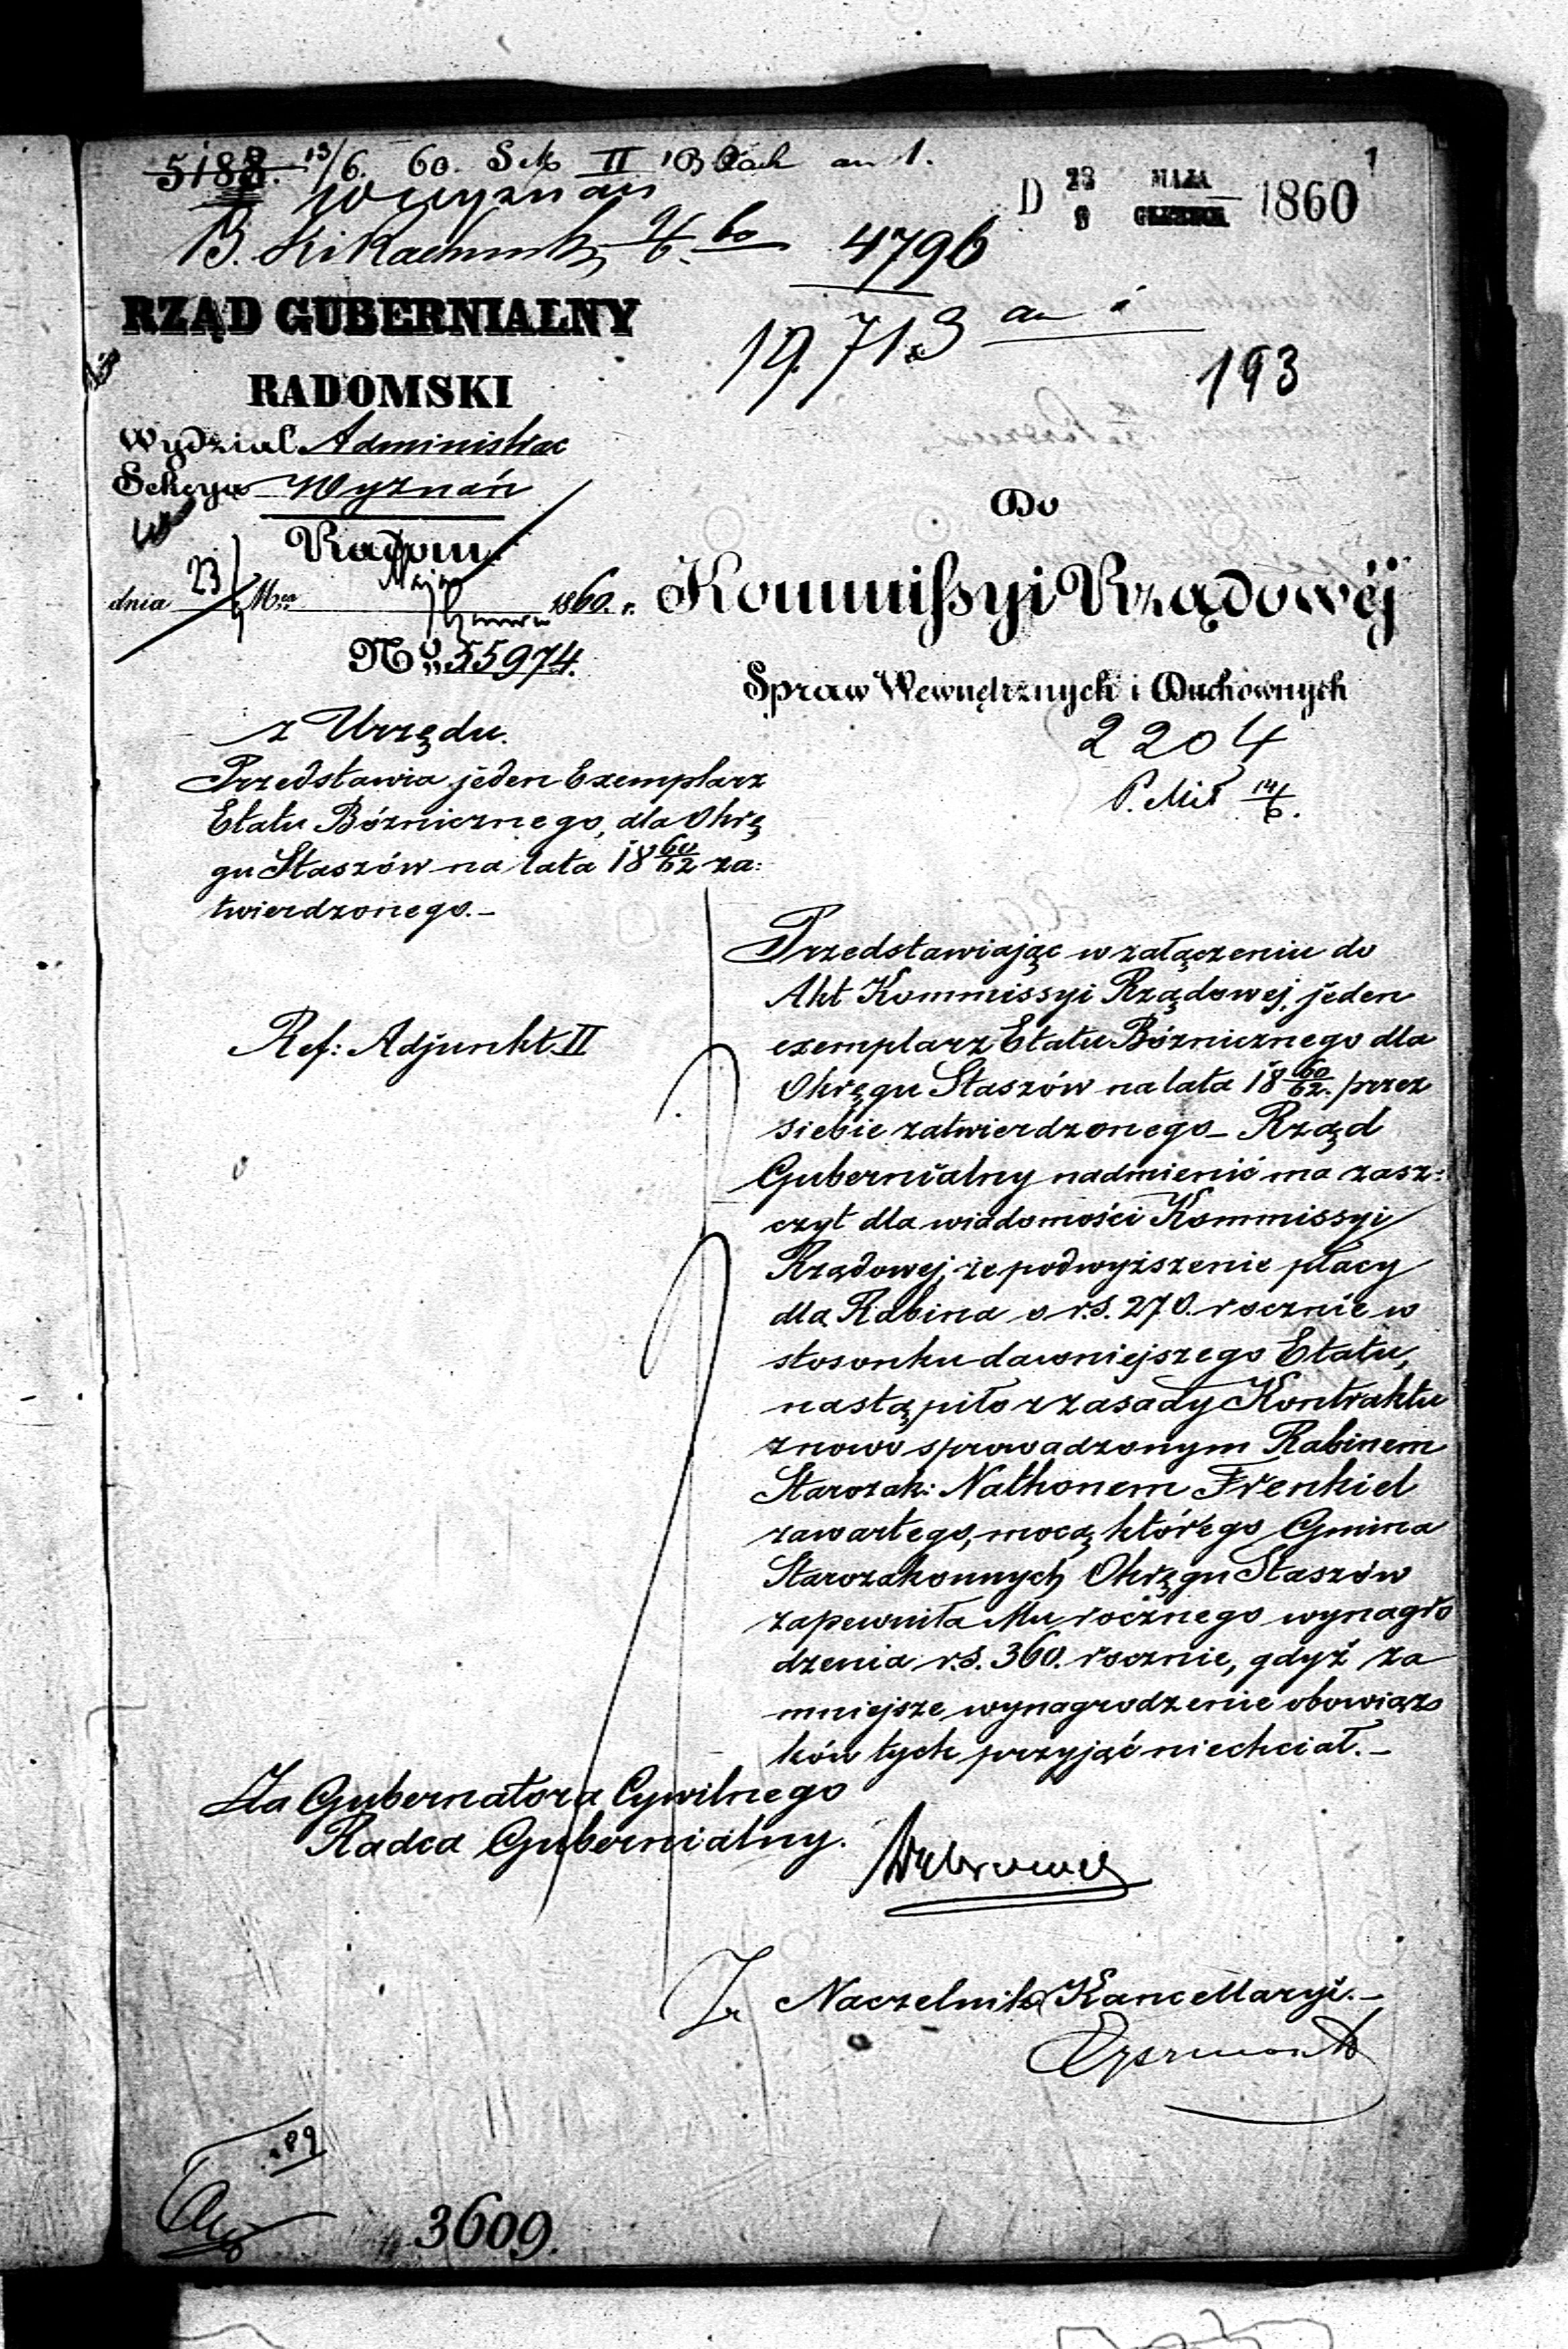 5188. 13/6 60. Sek II
Wyznań
4796
D 23 MAJA 1860
1
19.713 an i
193
RZĄD GUBERNIALNY
RADOMSKI
Wydział Administrac
Sekcya Wyznań
Radom
dnia 23/ Mca Maja/Czerwca 1860. r.
No. 55974.
Do
Kommissyi Rządowéj
Spraw Wewnętrznych i Duchownych
2204
14/6.
z Urzędu.
Przedstawia jeden Exemplarz
Etatu Bóżnicznego, dla Okrę
gu Staszów na lata 18 60/62 za:
twierdzonego.-
Ref: Adjunkt II
Przedstawiając w załączeniu do
Akt Kommissyi Rządowej, jeden
exemplarz Etatu Bóżnicznego dla
Okręgu Staszów na lata 18 60/62. przez
siebie zatwierdzonego_ Rząd
Gubernialny nadmienić ma zasz:
czyt dla wiadomości Kommissyi
Rządowej, że podwyższenie płacy
dla Rabina o r.s. 270. rocznie w
stosunku dawniejszego Etatu,
nastąpiło z zasady Kontraktu
z nowo sprowadzonym Rabinem
Starozak: Nathonem Frenkiel
zawartego, mocą którego Gmina
Starozakonnych Okręgu Staszów
zapewniła Mu rocznego wynagro
dzenia r.s. 360. rocznie, gdyż za
mniejsze wynagrodzenie obowiąz
ków tych przyjąć niechciał.-
Za Gubernatora Cywilnego
Radca Gubernialny.
Naczelnik Kancellaryi.-
189
3609.